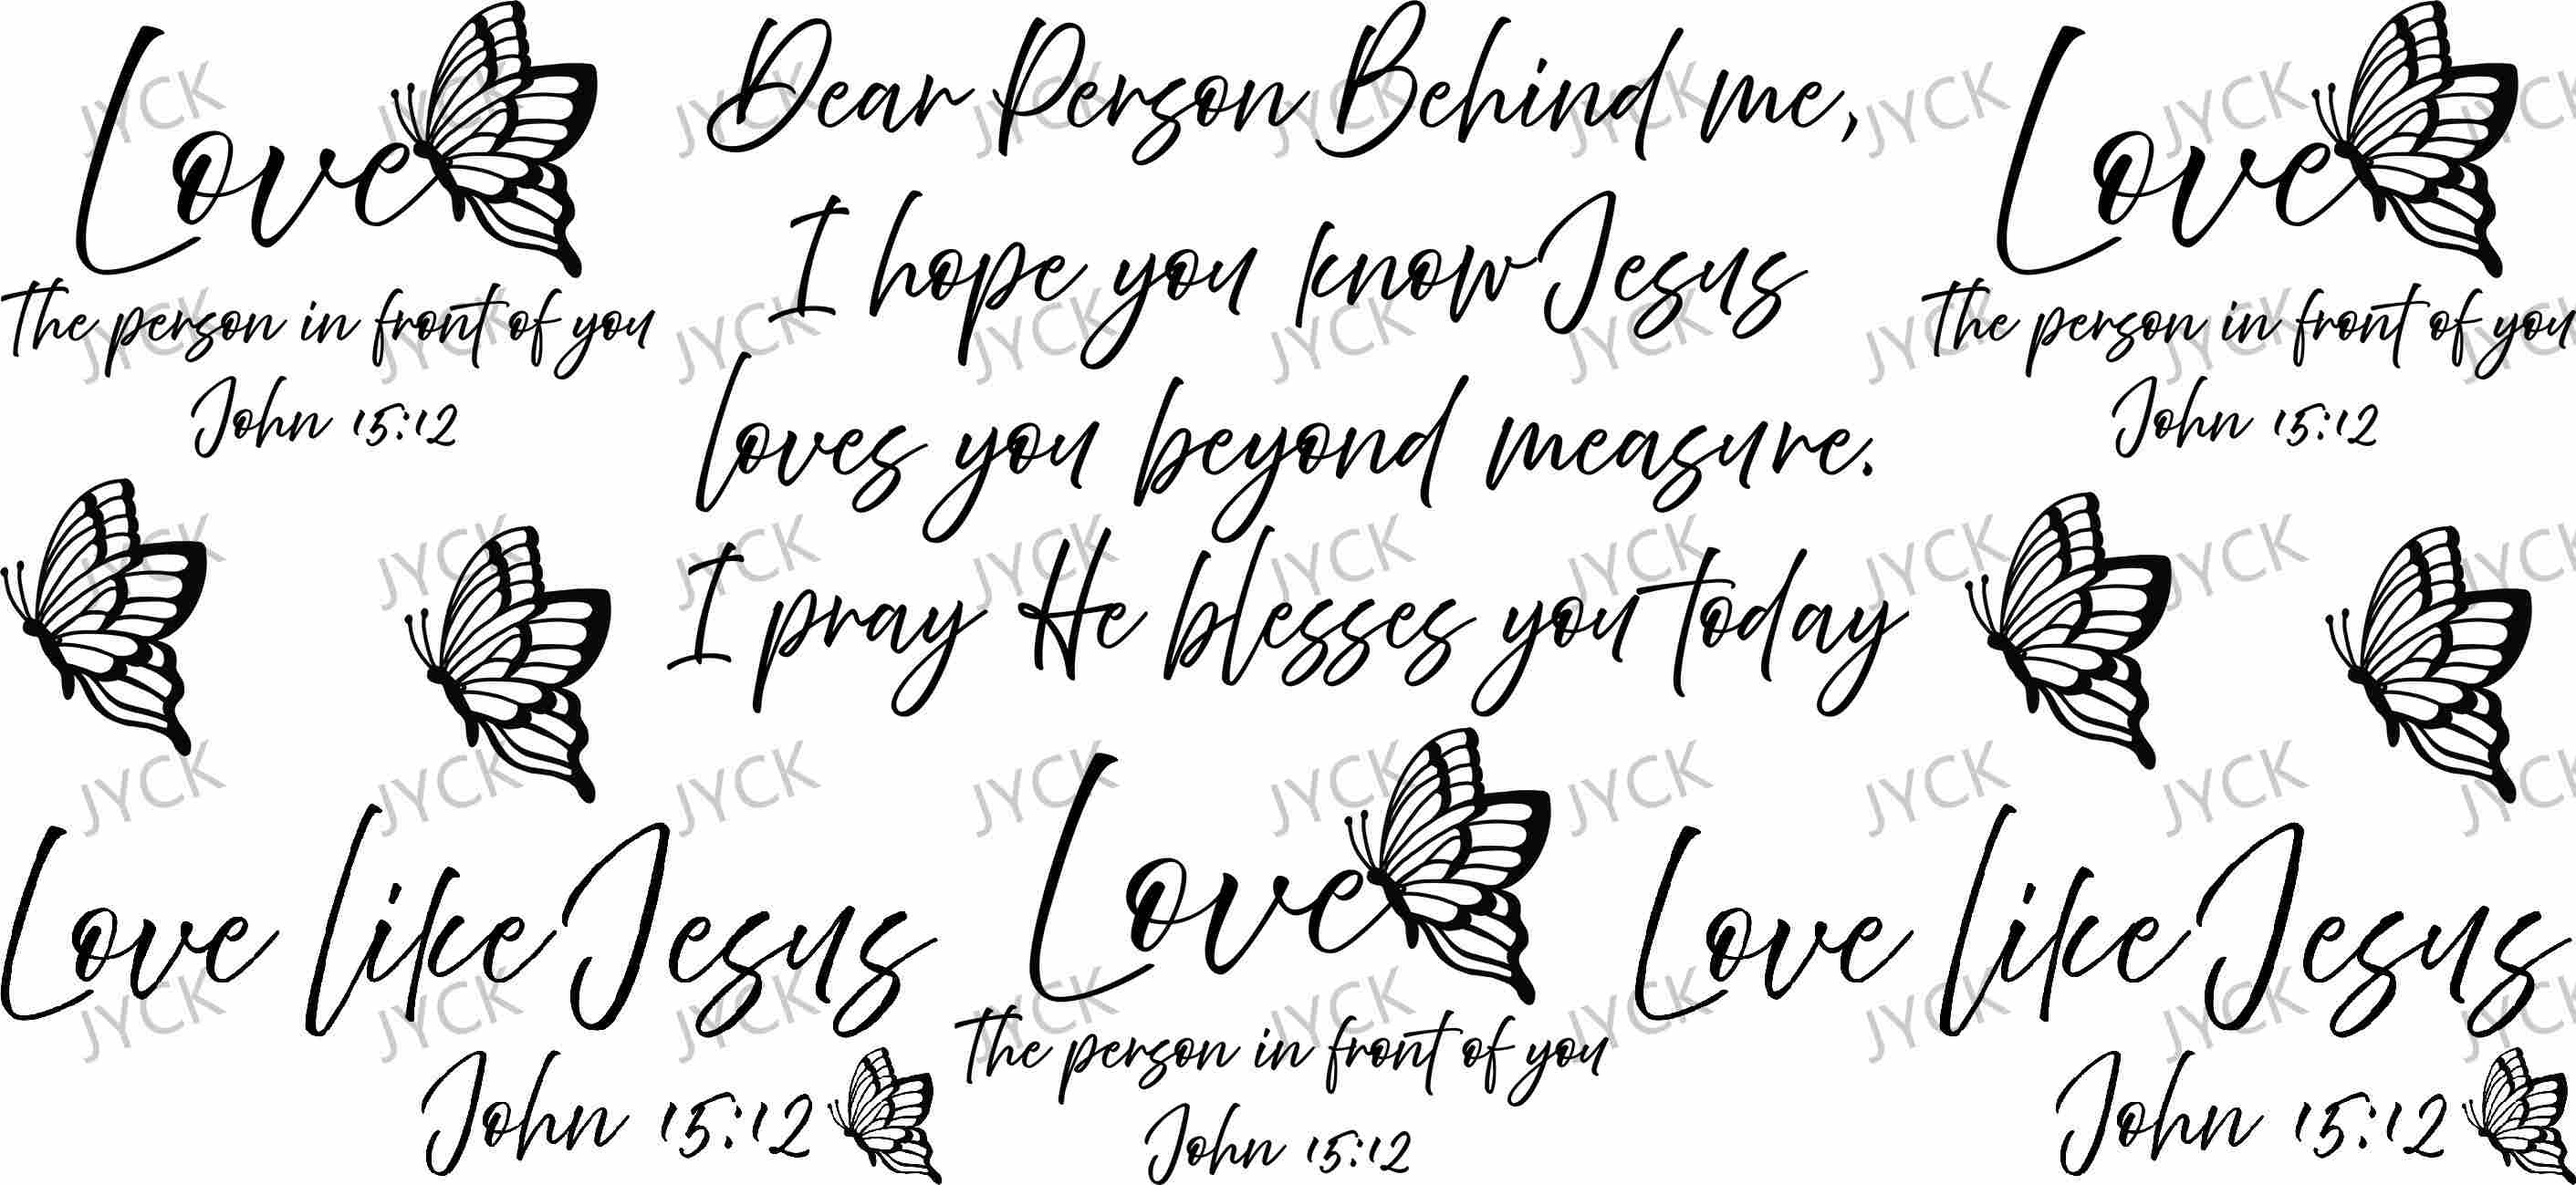 Love
the person in front of you
John 15:12
Dear Person Behind me,
I hope you know Jesus
loves you beyond measure.
I pray He blesses you today
Love
the person in front of you
John 15:12
Love like Jesus
John 15:12
Love
the person in front of you
John 15:12
Love like Jesus
John 15:12
JYCK